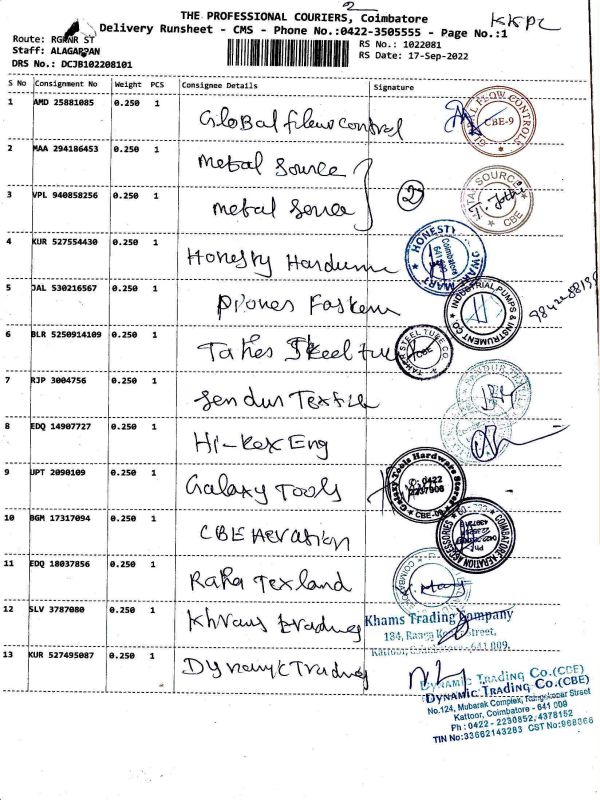 2
THE PROFESSIONAL COURIERS, Coimbatore
KKPL
Delivery Runsheet - CMS - Phone No.:0422-3505555 - Page No.:1
Route: RGKNR ST
RS No.: 1022081
Staff: ALAGARPAN
RS Date: 17-Sep-2022
DRS No.: DCJB102208101
S No Consignment No Weight PCS Consignee Details Signature
1 AMD 25881085 0.250 1 Global flow control
FLOW CONTROLS CBE-9
2 MAA 294186453 0.250 1 Metal Source
3 VPL 940858256 0.250 1 Metal Source
2
METAL SOURCE CBE
4 KUR 527554430 0.250 1 Honesty Hardware
HONESTY Coimbatore MART
5 JAL 530216567 0.250 1 Fasten
INDUSTRIAL PUMPS & INSTRUMENT CO.
6 BLR 5250914109 0.250 1 Steel tube
TAHER STEEL TUBE CO. CBE
7 RJP 3004756 0.250 1 Sendur Textile
8 EDQ 14907727 0.250 1 Hi-Rex Eng
9 UPT 2090109 0.250 1 Galaxy Tools
Galaxy Tools Hardware Stores 0422 CBE
10 BGM 17317094 0.250 1 CBE Aeration
COIMBATORE AERATION ACCESSORIES
11 EDQ 18037856 0.250 1 Raha Texland
12 SLV 3787080 0.250 1 trading
Khams Trading Company
184, Ranga Street,
Kattoor, Coimbatore - 641 009.
13 KUR 527495087 0.250 1 Dynamic Trading
DYNAMIC TRADING CO.(CBE)
DYNAMIC TRADING CO.(CBE)
No.124, Mubarak Complex, Street
Kattoor, Coimbatore - 641 009
Ph : 0422 - 2230852, 4378152
TIN No:33662143283 CST No:968366